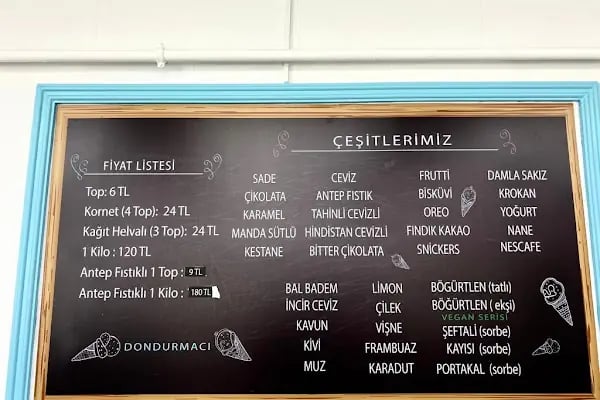 FİYAT LİSTESİ
Top: 6 TL
Kornet (4 Top): 24 TL
Kağıt Helvalı (3 Top): 24 TL
1 Kilo : 120 TL
Antep Fıstıklı 1 Top : 9 TL
Antep Fıstıklı 1 Kilo : 180 TL
DONDURMACI
ÇEŞİTLERİMİZ
SADE
ÇİKOLATA
KARAMEL
MANDA SÜTLÜ
KESTANE
CEVİZ
ANTEP FISTIK
TAHİNLİ CEVİZLİ
HİNDİSTAN CEVİZLİ
BİTTER ÇİKOLATA
FRUTTİ
BİSKÜVİ
OREO
FINDIK KAKAO
SNICKERS
DAMLA SAKIZ
KROKAN
YOĞURT
NANE
NESCAFE
BAL BADEM
İNCİR CEVİZ
KAVUN
KİVİ
MUZ
LİMON
ÇİLEK
VİŞNE
FRAMBUAZ
KARADUT
BÖGÜRTLEN (tatlı)
BÖĞÜRTLEN ( ekşi)
VEGAN SERİSİ
ŞEFTALİ (sorbe)
KAYISI (sorbe)
PORTAKAL (sorbe)